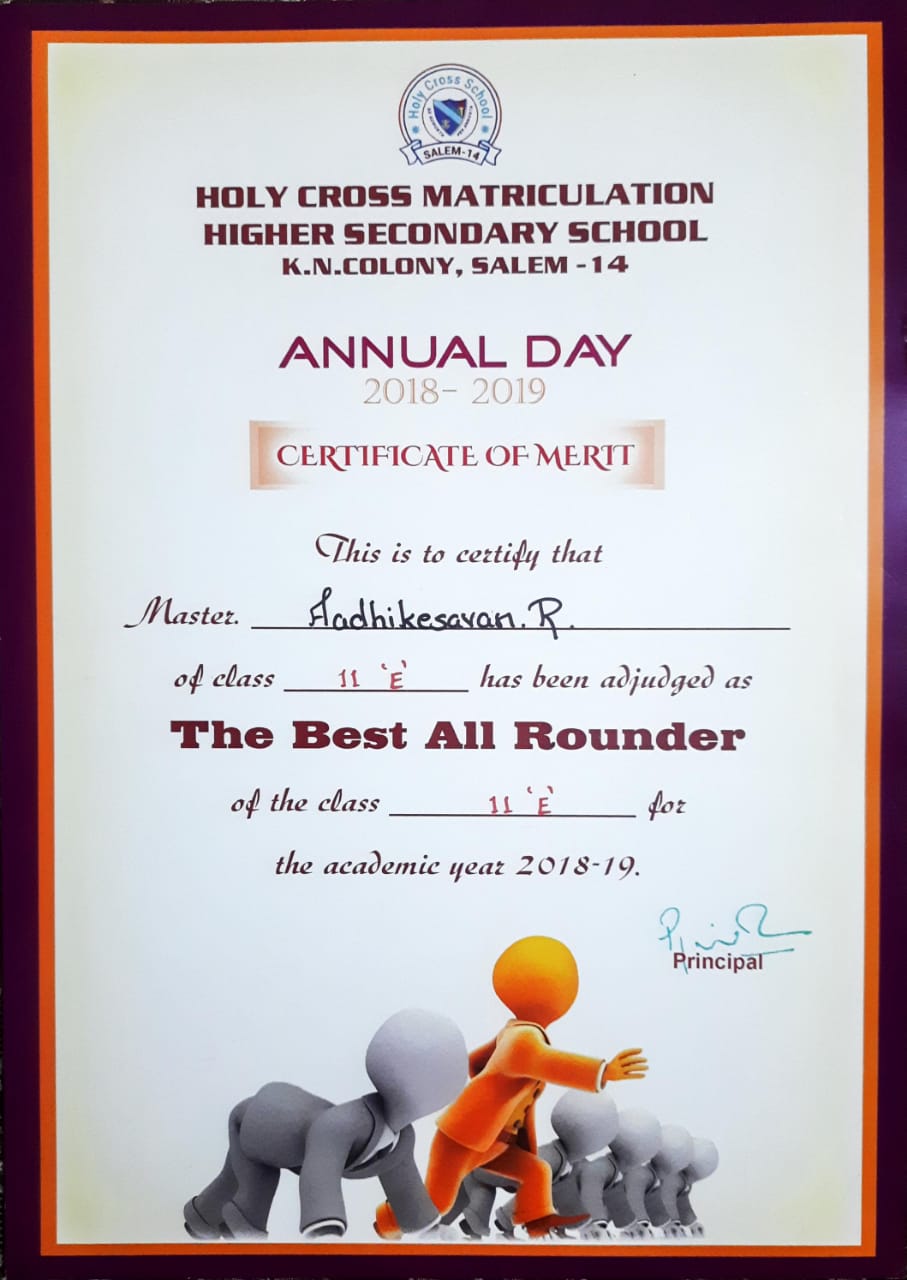 Holy Cross School
SALEM-14
HOLY CROSS MATRICULATION
HIGHER SECONDARY SCHOOL
K.N.COLONY, SALEM -14
ANNUAL DAY
2018- 2019
CERTIFICATE OF MERIT
This is to certify that
Master. Aadhikesavan. R.
of class 11 'E' has been adjudged as
The Best All Rounder
of the class 11 'E' for
the academic year 2018-19.
Principal